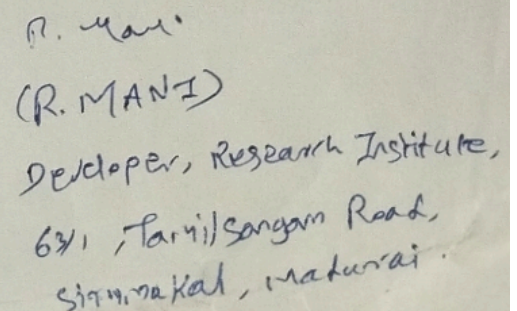 R. Mani
(R. MANI)
Developer, Research Institute,
63/1, Tamilsangam Road,
Simmakal, Madurai.